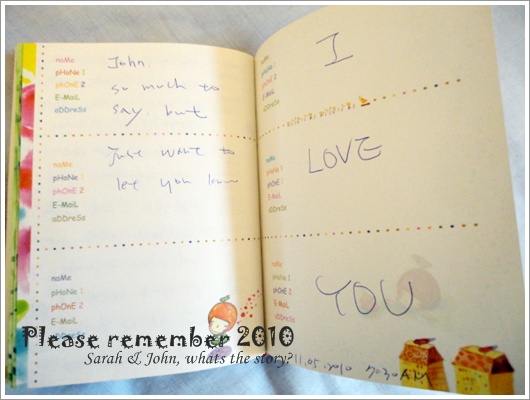 naMe
pHoNe 1
phOnE 2
E-MaiL
aDDreSs
John,
so much to
say, but
naMe
pHoNe 1
phOnE 2
E-MaiL
aDDreSs
just want to
let you know
naMe
pHoNe 1
phOnE 2
E-MaiL
naMe
pHoNe 1
phOnE 2
E-MaiL
aDDreSs
I
naMe
pHoNe 1
phOnE 2
E-MaiL
aDDreSs
LOVE
naMe
pHoNe 1
phOnE 2
E-MaiL
aDDreSs
YOU
11.05.2010
Please remember 2010
Sarah & John, whats the story?